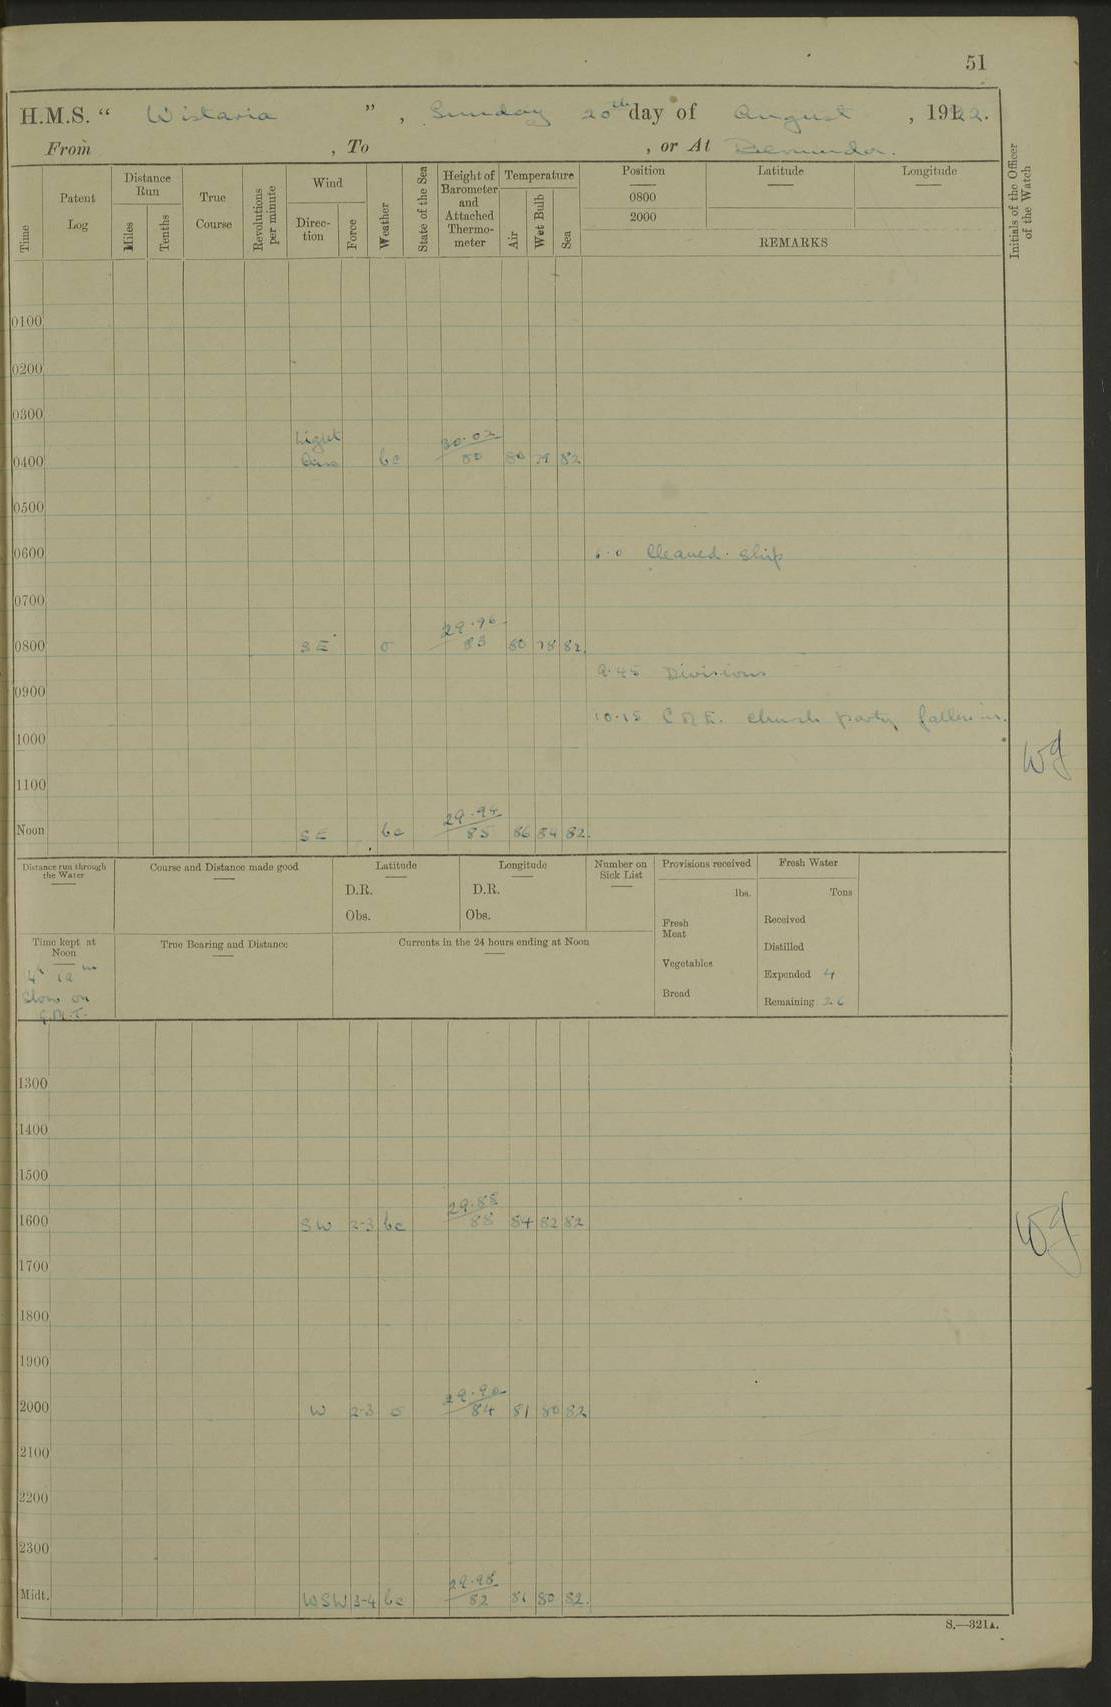 51
H.M.S. “ Wistaria ” , Sunday 20th day of August , 1922.
From , To , or At Bermuda.
Time Patent Log Distance Run Miles Tenths True Course Revolutions per minute Wind Direction Force Weather State of the Sea Height of Barometer and Attached Thermometer Temperature Air Wet Bulb Sea Position 0800 2000 Latitude Longitude REMARKS Initials of the Officer of the Watch
0100
0200
0300
Light 30.02
0400 Airs bc 80 80 79 82
0500
0600 6.0 Cleaned Ship
0700
29.96
0800 SE o 83 80 78 82.
9.45 Divisions
0900
10.15 C of E. church party fallen in.
1000
Wg
1100
29.94
Noon SE bc 85 86 84 82.
Distance run through the Water Course and Distance made good Latitude Longitude Number on Sick List Provisions received Fresh Water
D.R. D.R. lbs. Tons
Obs. Obs. Fresh Meat Received
Time kept at Noon True Bearing and Distance Currents in the 24 hours ending at Noon Distilled
Vegetables
4h 19m Expended 4
Slow on Bread Remaining 26
G.M.T.
1300
1400
1500
29.88
1600 SW 2-3 bc 88 84 82 82
Wg
1700
1800
1900
29.90
2000 W 2-3 o 84 81 80 82
2100
2200
2300
29.98
Midt. WSW 3-4 bc 82 81 80 82.
S.—321A.